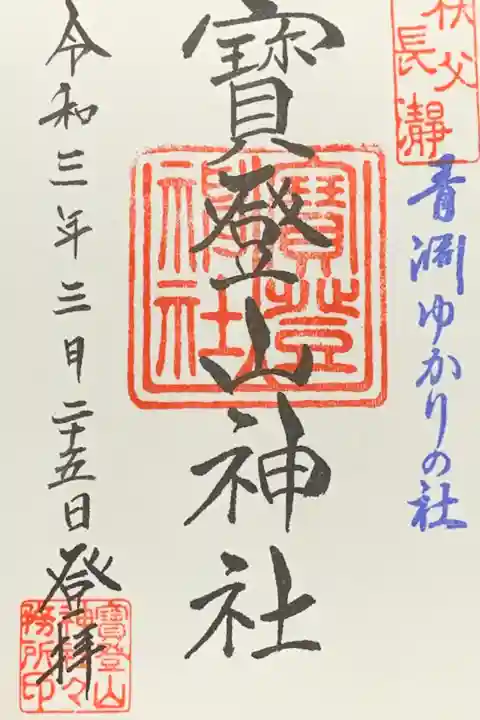 秩父
長瀞
青淵ゆかりの社
寳登山神社
寳登山
神社
令和三年三月二十五日登拝
寳登山
神社々
務所印